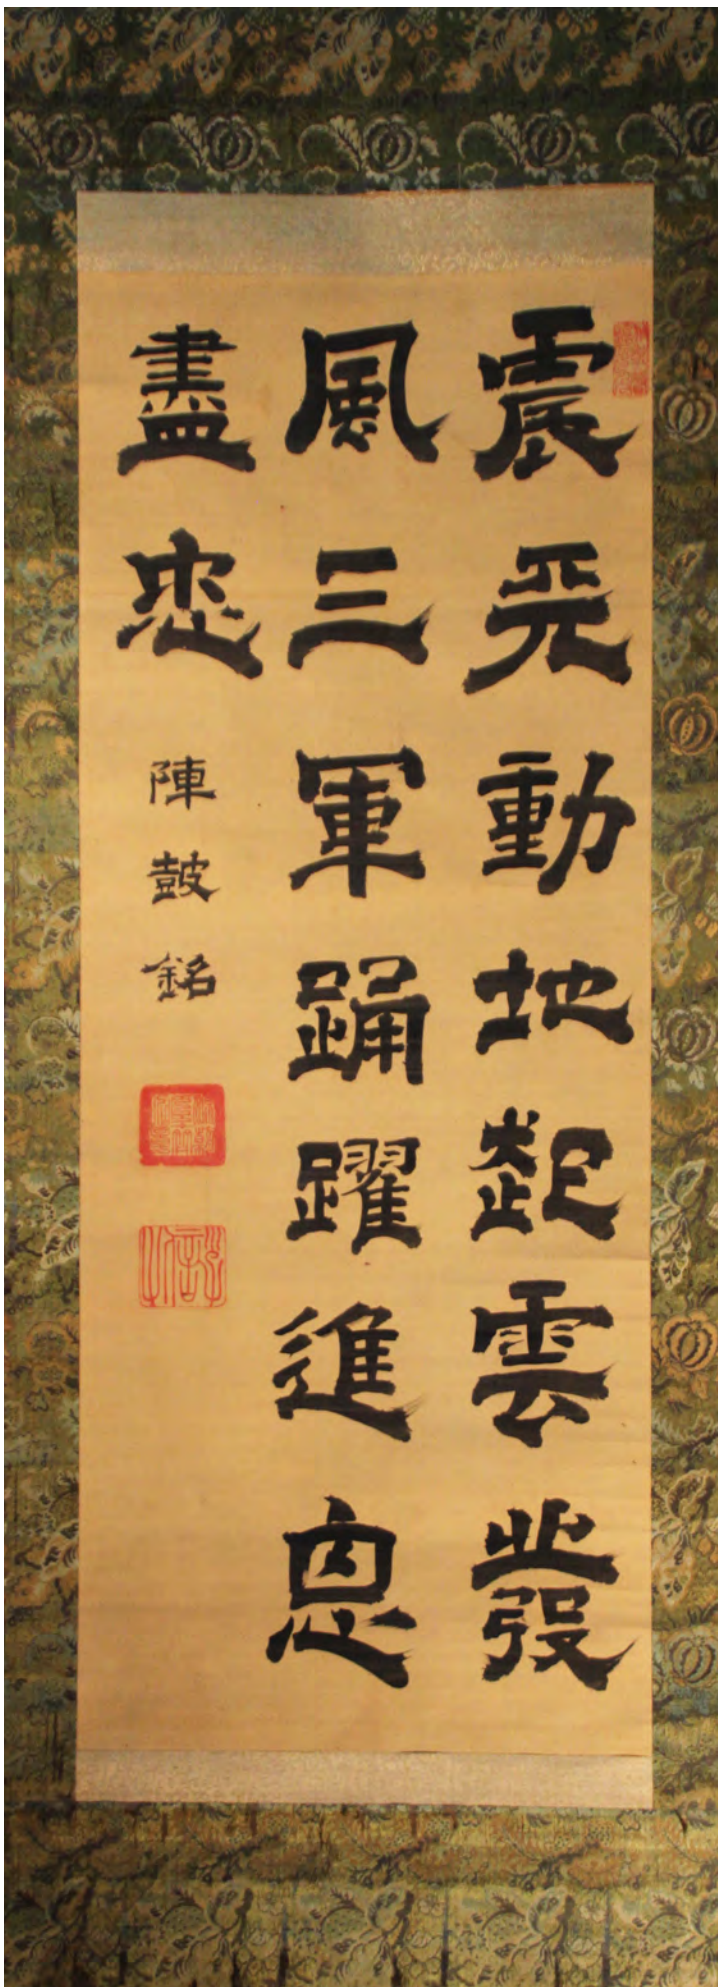 震天動地起雲發
風三軍踊躍進思
盡忠
陣皷銘